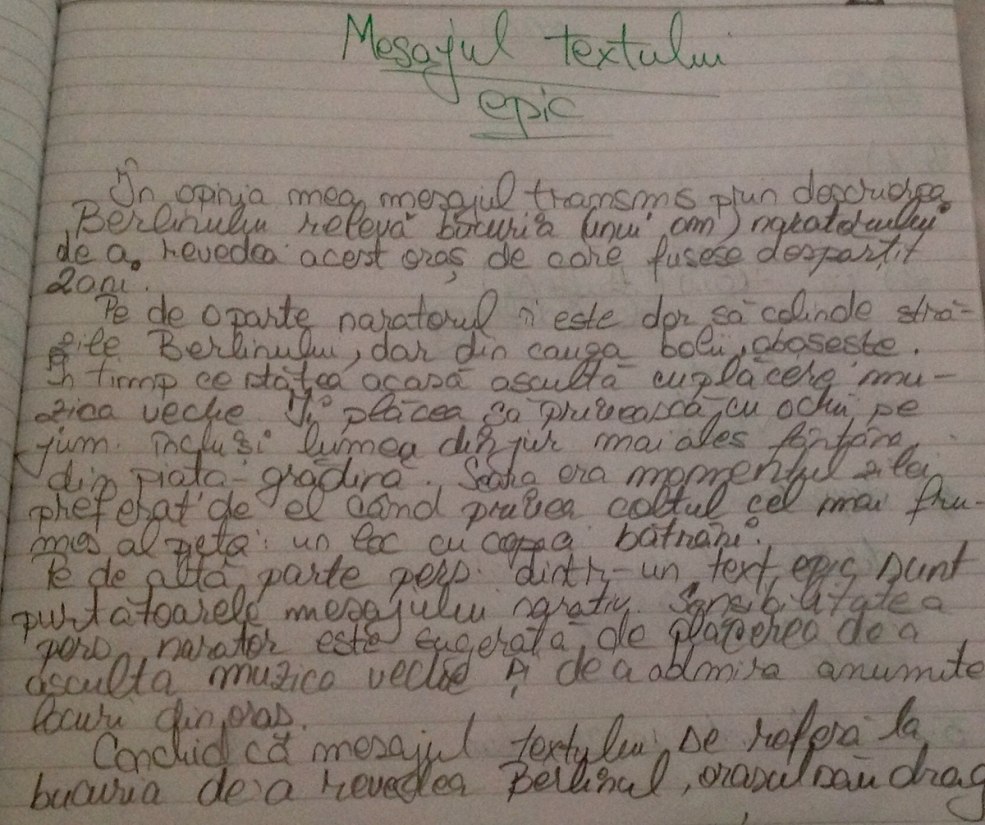 Mesajul textului
epic
În opinia mea mesajul transms prin descrierea
Berlinului relevă bucuria unui om, naratorului
de a revedea acest oraș de care fusese despărțit
20ani.
Pe de oparte naratorul îi este dor să colinde stră-
zile Berlinului, dar din cauza bolii, oboseste.
În timp ce stătea acasă asculta cuplăcere mu-
zica veche. Îi plăcea să privească, cu ochii pe
jum. inchisi lumea din jur mai ales fântâna
din piata-grădină. Seara era momentul zilei
preferat de el când privea coltul cel mai fru-
mos al pietei: un loc cu copaci bătrâni.
Pe de altă parte pers. dintr-un text epic sunt
purtătoarele mesajului narativ. Sensibilitatea
pers. narator este sugerată de plăcerea de a
asculta muzica veche și de a admira anumite
locuri din oras.
Conchid că mesajul textului se referă la
bucuria de a revedea Berlinul, orasul său drag